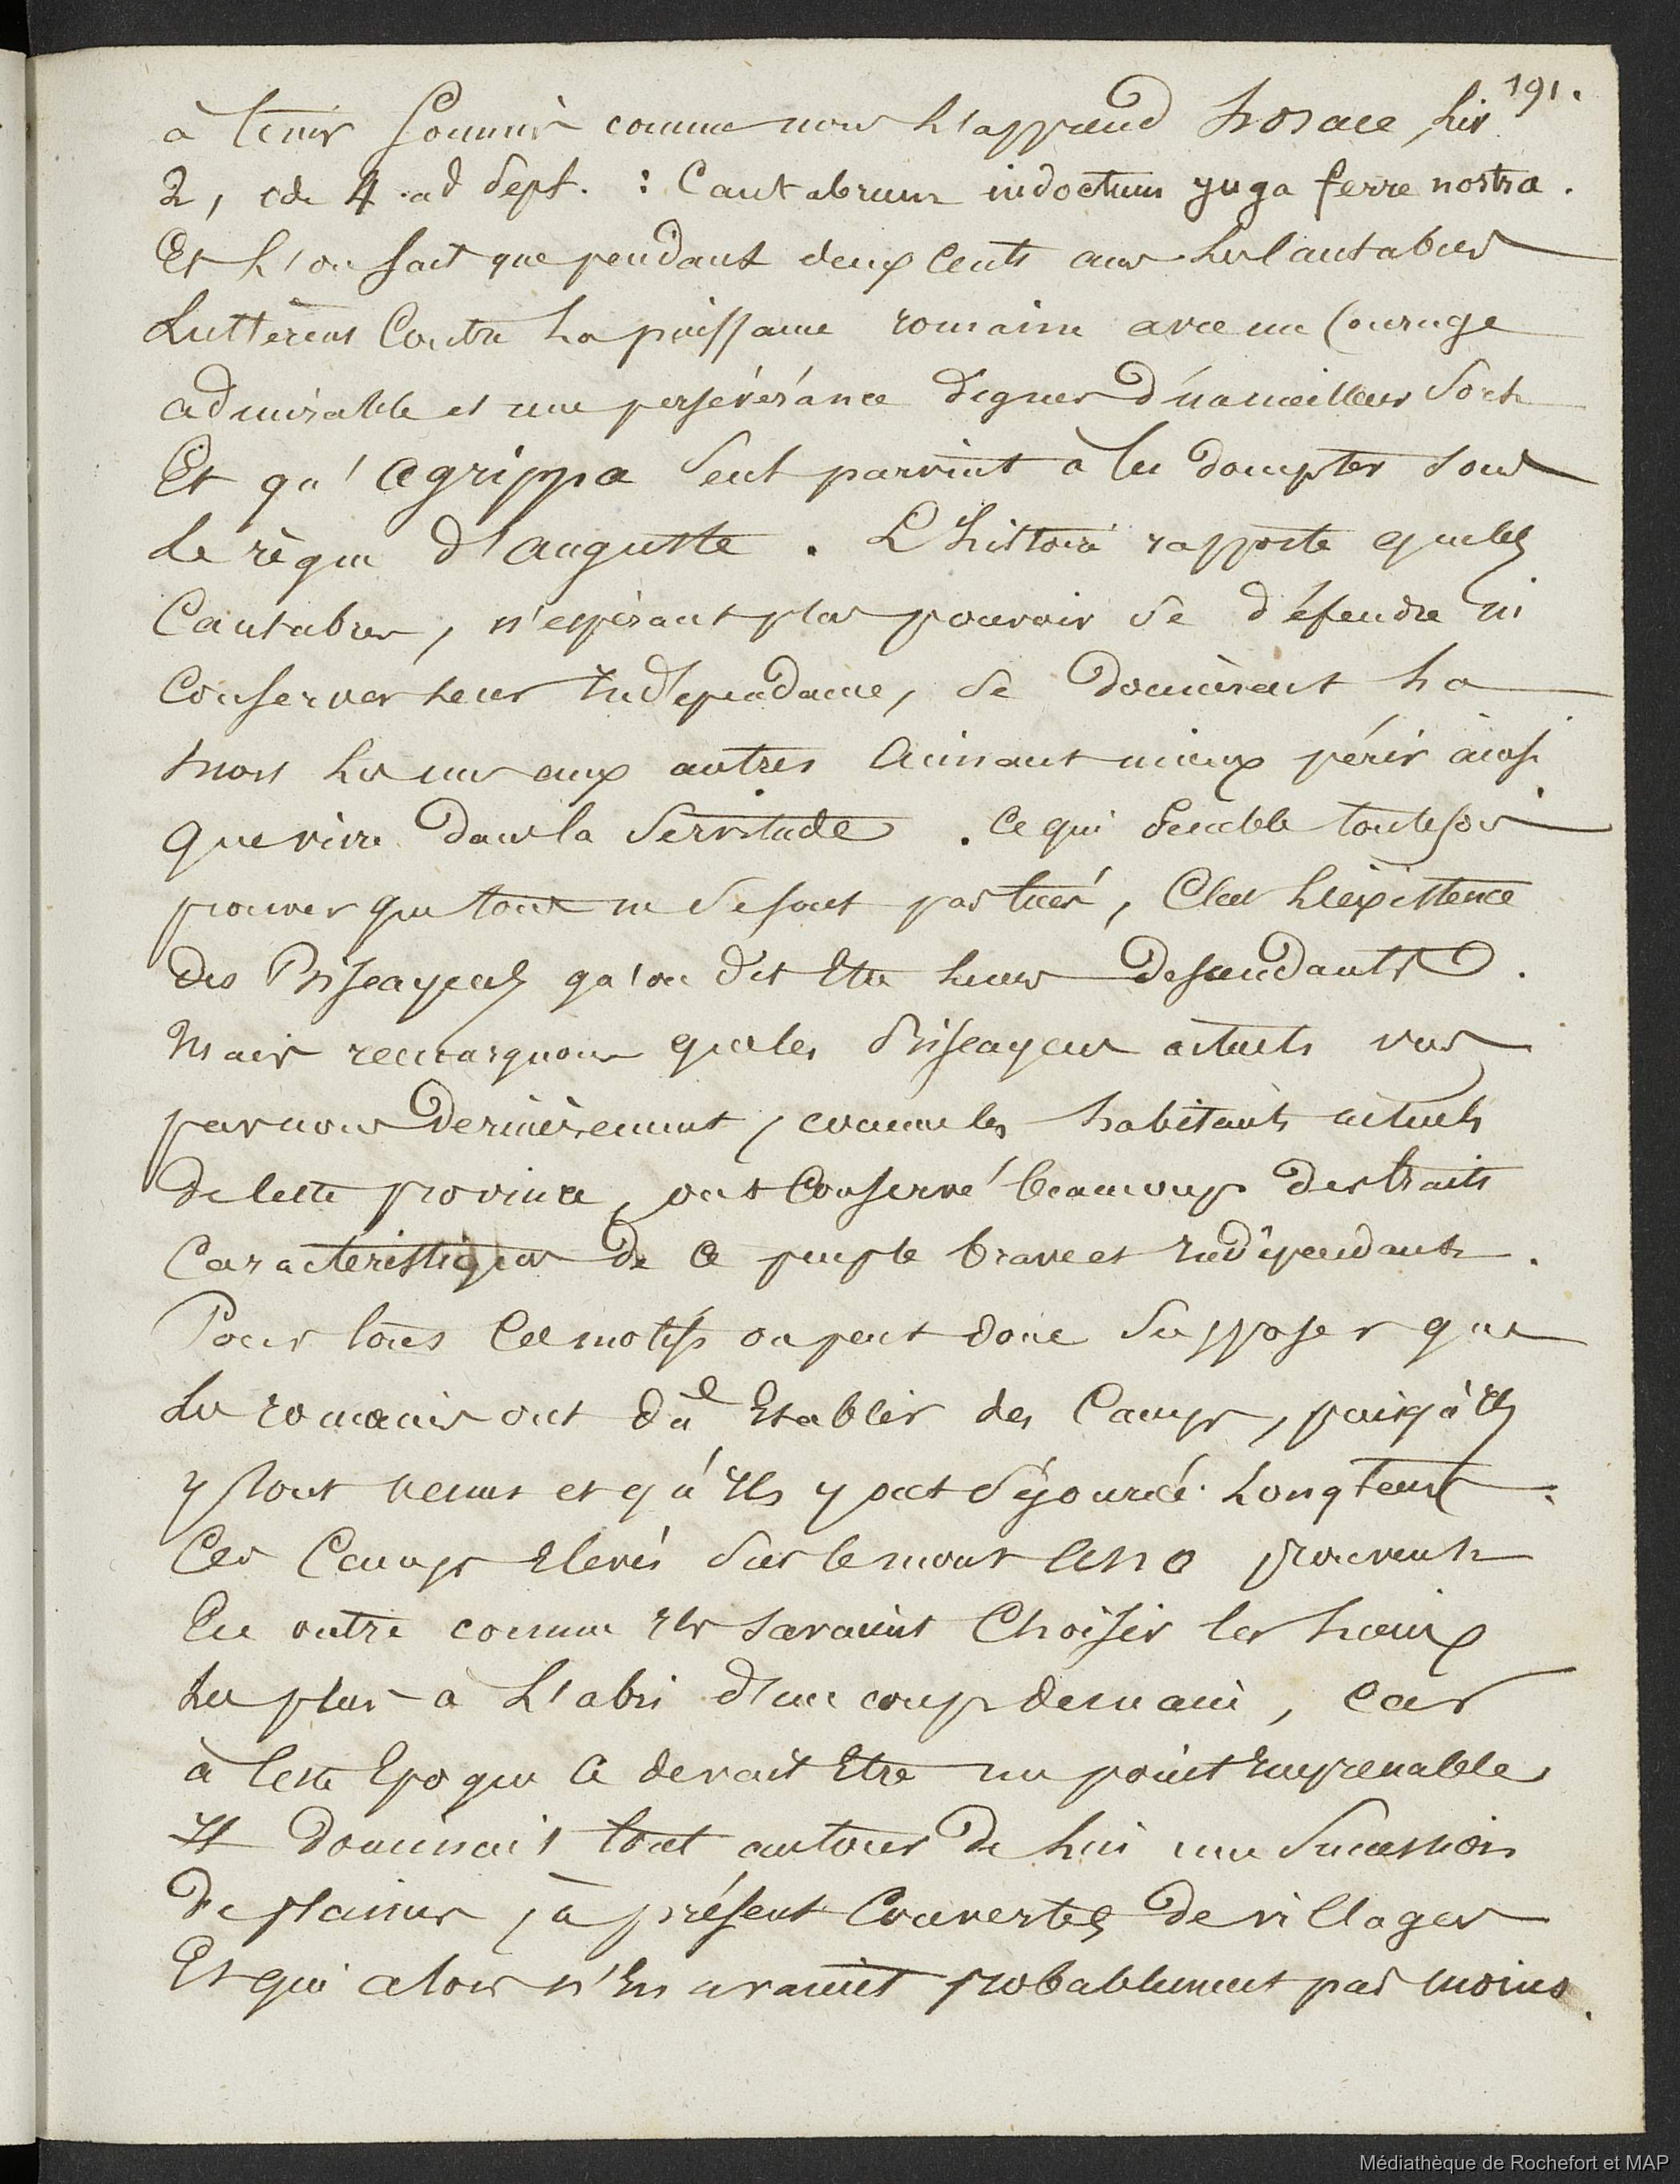 191.
à tenir soumis comme nous l'apprend horace, liv
2, ode 4 ad Sept. : Cantabrum indoctum yuga ferre nostra.
Et l'on sait que pendant deux cents ans les Cantabres
Luttèrent Contre la puissance romaine avec un Courage
admirable et une persévérance dignes d'un meilleur Sort
Et qu'agrippa seul parvint à les dompter sous
le règne d'auguste. L'histoire rapporte que les
Cantabres, n'espérant plus pouvoir se défendre ni
Conserver leur Indépendance, se donnèrent la
mort les uns aux autres aimant mieux périr ainsi
que vivre dans la Servitude. Ce qui semble toutefois
prouver que tous ne se sont pas tués, C'est l'existence
des Biscayens qu'on dit Etre leurs descendants.
Mais remarquons que les Biscayens actuels vus
par nous dernièrement, comme les habitants actuels
de cette province, ont Conservé beaucoup des traits
Caracteristiques de Ce peuple brave et Indépendant.
Pour tous Ces motifs on peut donc Supposer que
les romains ont dû Etablir des Camps, puisqu'Ils
y sont venus et qu'Ils y ont séjourné longtems.
Ces Camps Elevés sur le mont prouvent
En outre comme Ils savaient Choisir les lieux
les plus à l'abri d'un coup de main, car
à Cette Epoque Ce devait Etre un point Imprenable
Il dominait tout autour de lui une Succession
de plaines, à présent Couvertes de villages
Et qui alors n'En avaient probablement pas moins.
Médiathèque de Rochefort et MAP